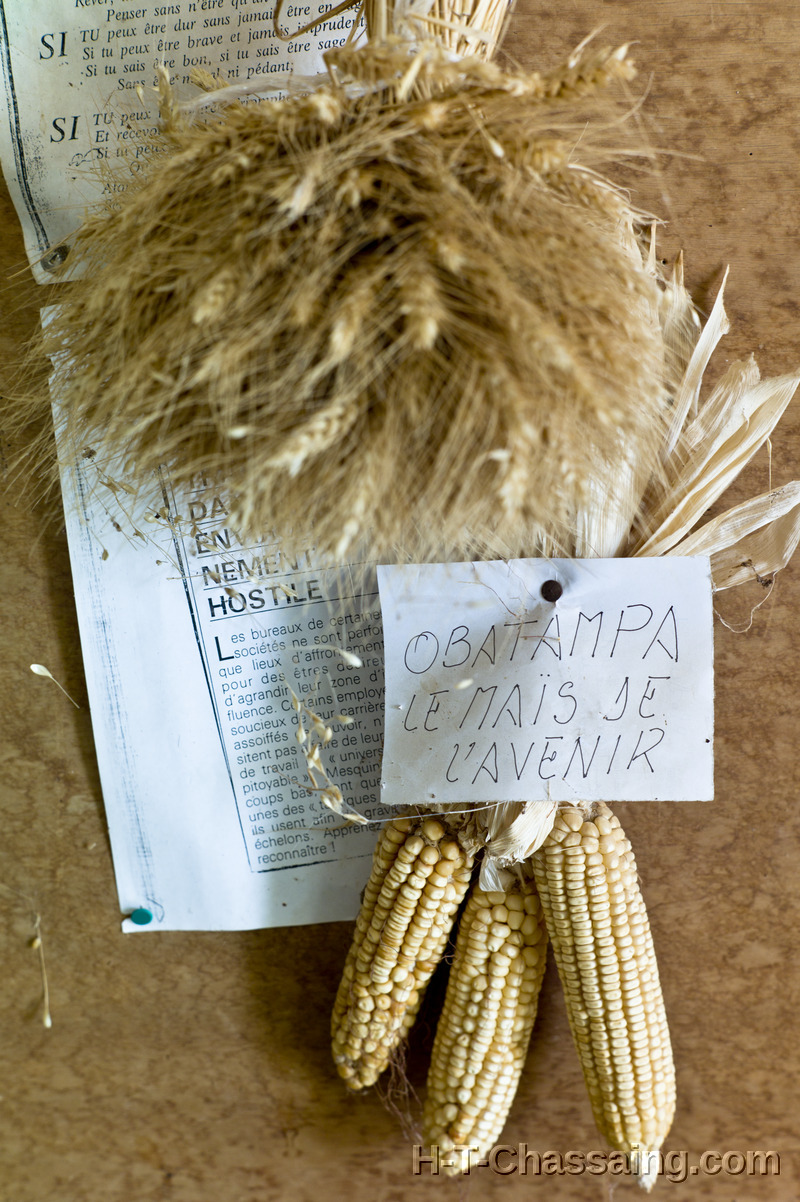 Penser sans n'être qu'un
SI TU peux être dur sans jamais être en
Si tu peux être brave et jamais imprudent
Si tu sais être bon, si tu sais être sage
Sans être moral ni pédant;
SI TU peux
Et recevoir
Si tu peux
DA
ENVI
NEMENT
HOSTILE
Les bureaux de certaine
sociétés ne sont parfoi
que lieux d'affrontement
pour des êtres désireu
d'agrandir leur zone d'i
fluence. Certains employé
soucieux de leur carrière
assoiffés pouvoir, n'
sitent pas faire de leur
de travail « univers
pitoyable » Mesquin
coups bas, ont que
unes des « 
ils usent afin grav
échelons. Apprenez
reconnaître !
OBATAMPA
LE MAÏS DE
L'AVENIR
H-T-Chassaing.com